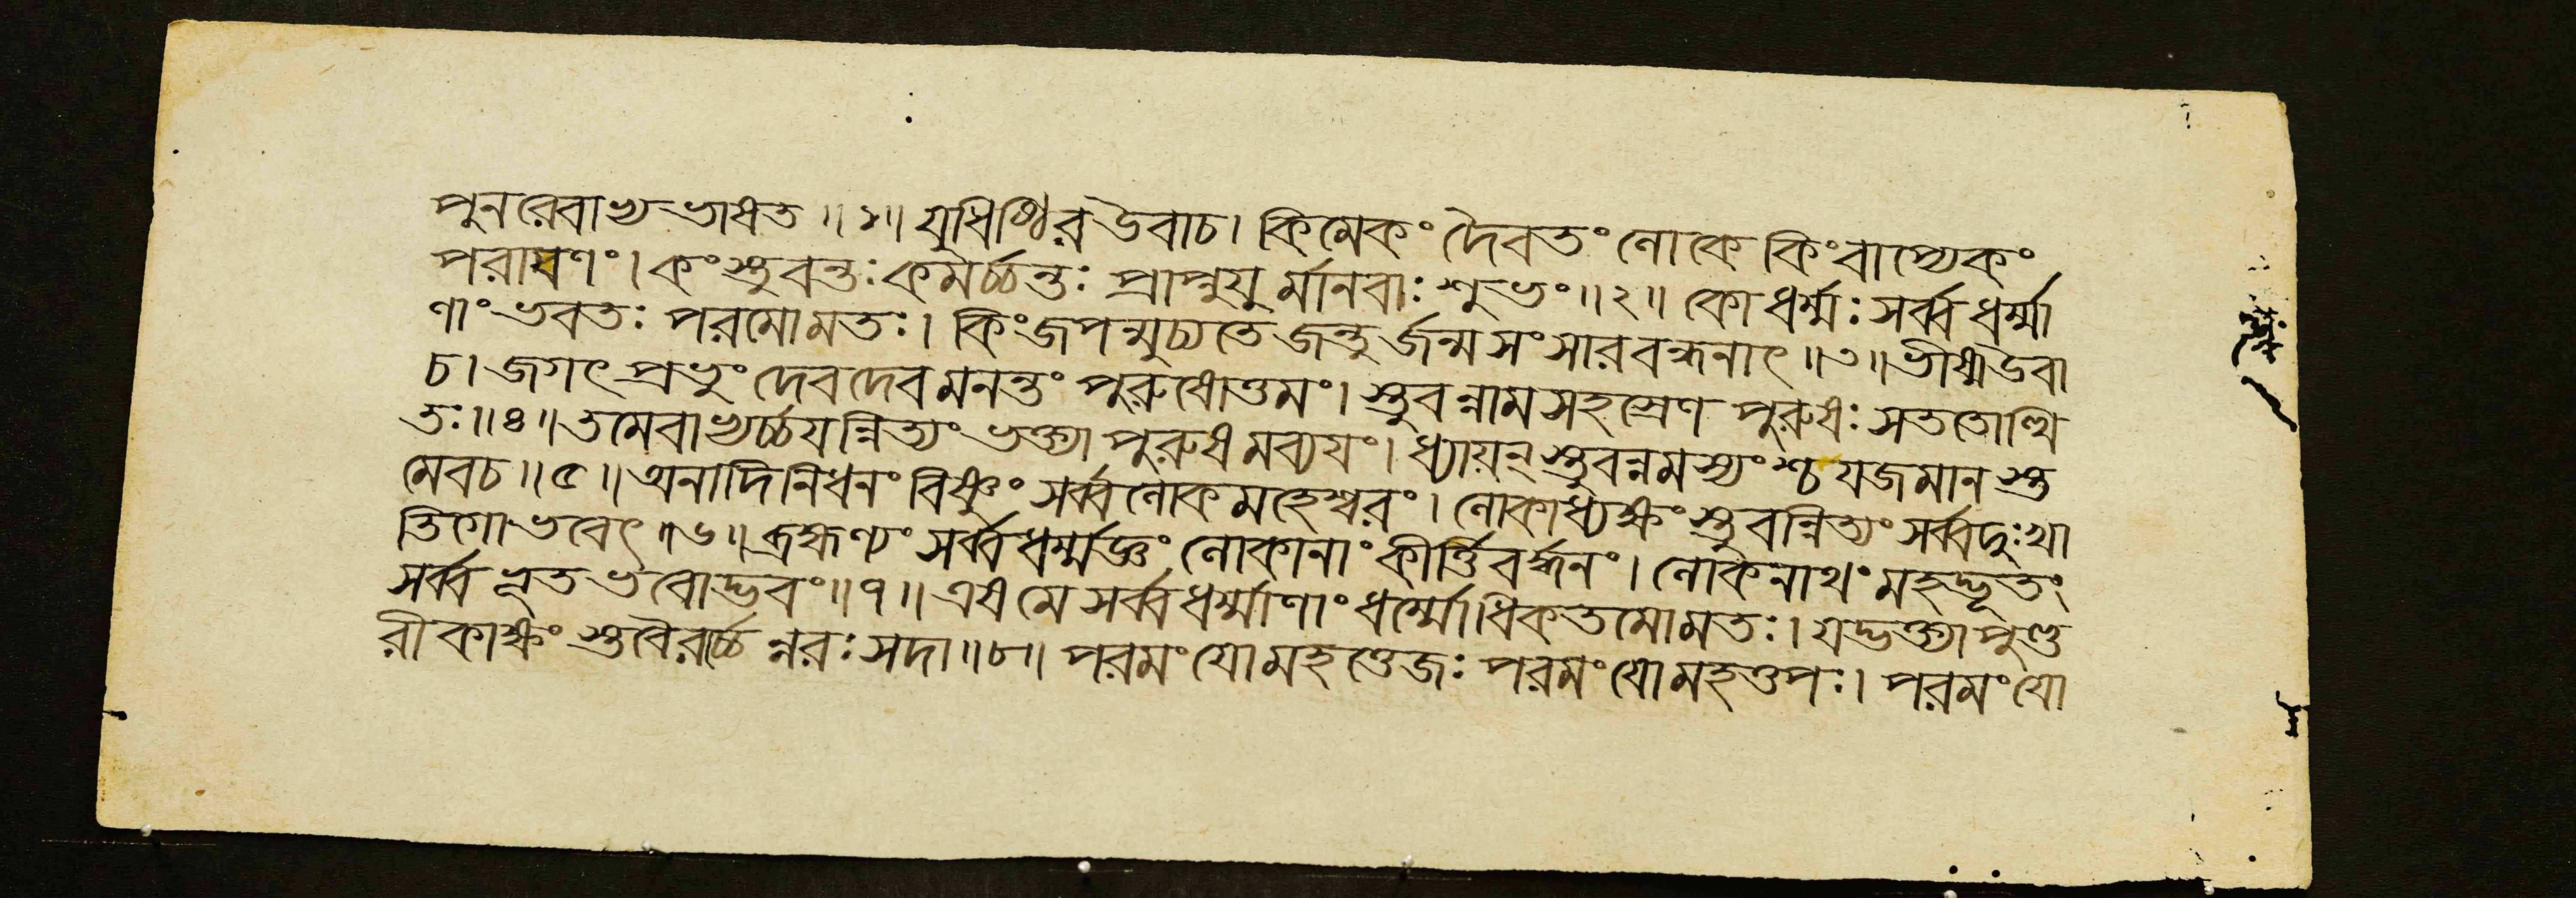 পুনরেবাভ্যভাষত ॥১॥ যুধিষ্ঠির উবাচ। কিমেকং দৈবতং লোকে কিংবাপ্যেকং
পরায়ণং। কংস্তুবন্তঃ কমর্চ্চন্তঃ প্রাপ্নুয়ু র্মানবাঃ শুভং ॥২॥ কোধর্ম্মঃ সর্ব্বধর্ম্মা
ণাংভবতঃ পরমোমতঃ। কিংজপন্মুচ্যতে জন্তুর্জন্মসংসারবন্ধনাৎ ॥৩॥ ভীষ্মউবা
চ। জগৎপ্রভুং দেবদেবমনন্তং পুরুষোত্তমং। স্তুবন্নামসহস্রেণ পুরুষঃ সততোত্থি
তঃ ॥৪॥ তমেবাভ্যর্চ্চয়ন্নিত্যং ভক্ত্যাপুরুষমব্যয়ং। ধ্যায়ন্ স্তুবন্নমস্যংশ্চ যজমানস্ত
মেবচ ॥৫॥ অনাদিনিধনং বিষ্ণুং সর্ব্বলোকমহেশ্বরং। লোকাধ্যক্ষং স্তুবন্নিত্যং সর্ব্বদুঃখা
তিগোভবেৎ ॥৬॥ ব্রহ্মণ্যং সর্ব্বধর্ম্মজ্ঞং লোকানাং কীর্ত্তিবর্দ্ধনং। লোকনাথং মহদ্ভূতং
সর্ব্বভূতভবোদ্ভবং ॥৭॥ এষমে সর্ব্বধর্ম্মাণাং ধর্ম্মোধিকতমোমতঃ। যদ্ভক্ত্যাপুণ্ড
রীকাক্ষং স্তবৈরর্চ্চেন্নরঃ সদা ॥৮॥ পরমংযোমহত্তেজঃ পরমংযোমহত্তপঃ। পরমংযো